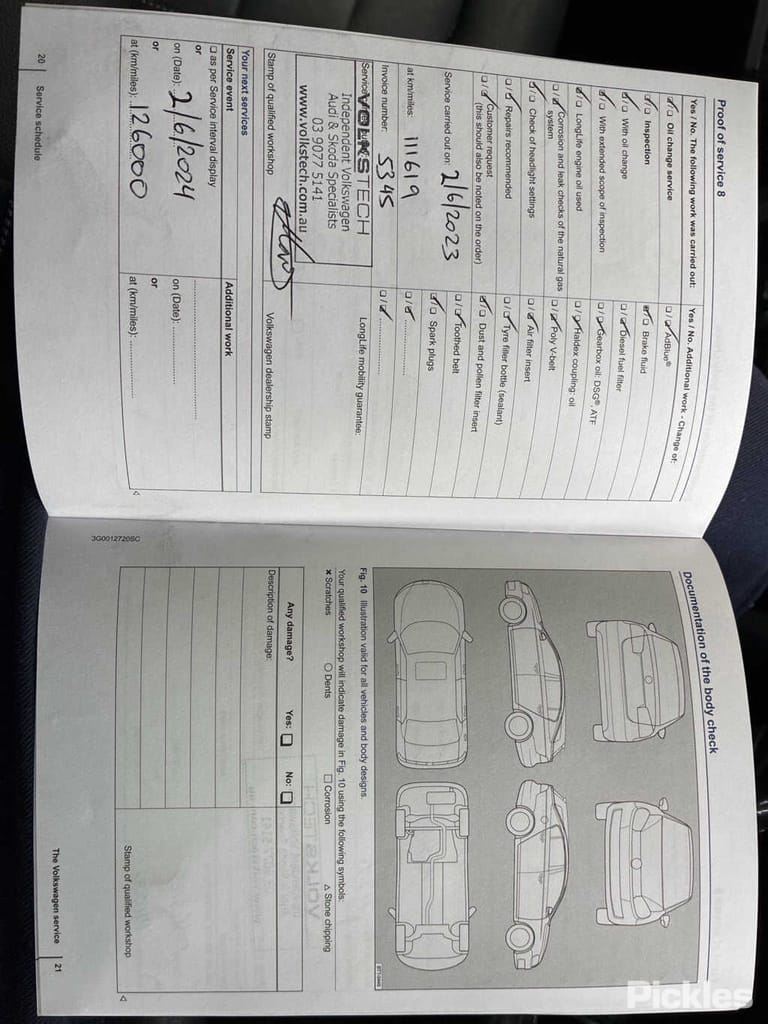 Proof of service 8
Yes / No. The following work was carried out:
Oil change service
Inspection
With oil change
With extended scope of inspection
LongLife engine oil used
Corrosion and leak checks of the natural gas
system
Check of headlight settings
Repairs recommended
Customer request
(this should also be noted on the order)
Service carried out on: 2/6/2023
at km/miles: 111619
Invoice number: 5345
Service
VOLKSTECH
Independent Volkswagen
Audi & Skoda Specialists
03 9077 5141
www.volkstech.com.au
Stamp of qualified workshop
Yes / No. Additional work - Change of:
AdBlue®
Brake fluid
Diesel fuel filter
Gearbox oil: DSG®, ATF
Haldex coupling: oil
Poly V-belt
Air filter insert
Tyre filler bottle (sealant)
Dust and pollen filter insert
Toothed belt
Spark plugs
LongLife mobility guarantee:
Volkswagen dealership stamp
Your next services
Service event
as per Service interval display
or
on (Date): 2/6/2024
or
at (km/miles): 126000
Additional work
on (Date):
or
at (km/miles):
20 Service schedule
Documentation of the body check
Fig. 10 Illustration valid for all vehicles and body designs.
Your qualified workshop will indicate damage in Fig. 10 using the following symbols:
× Scratches ○ Dents □ Corrosion △ Stone chipping
Any damage? Yes: □ No: □
Description of damage:
Stamp of qualified workshop
3G0012720SC
The Volkswagen service 21
Pickles